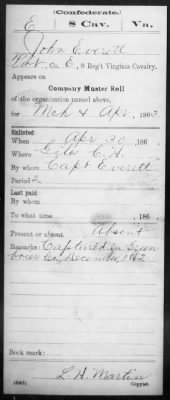 (Confederate.)
E 8 Cav. Va.
John Everett
Pvt, Co. E, 8 Reg't Virginia Cavalry.
Appears on
Company Muster Roll
of the organization named above,
for Mch & Apr, 1863.
Enlisted
When Apr. 30, 186
Where Giles C.H.
By whom Capt Everett
Period 2
Last paid
By whom
To what time , 186
Present or absent Absent
Remarks: Captured in Green
brier Co., December, 1862
Book mark:
L. H. Martin
Copyist.